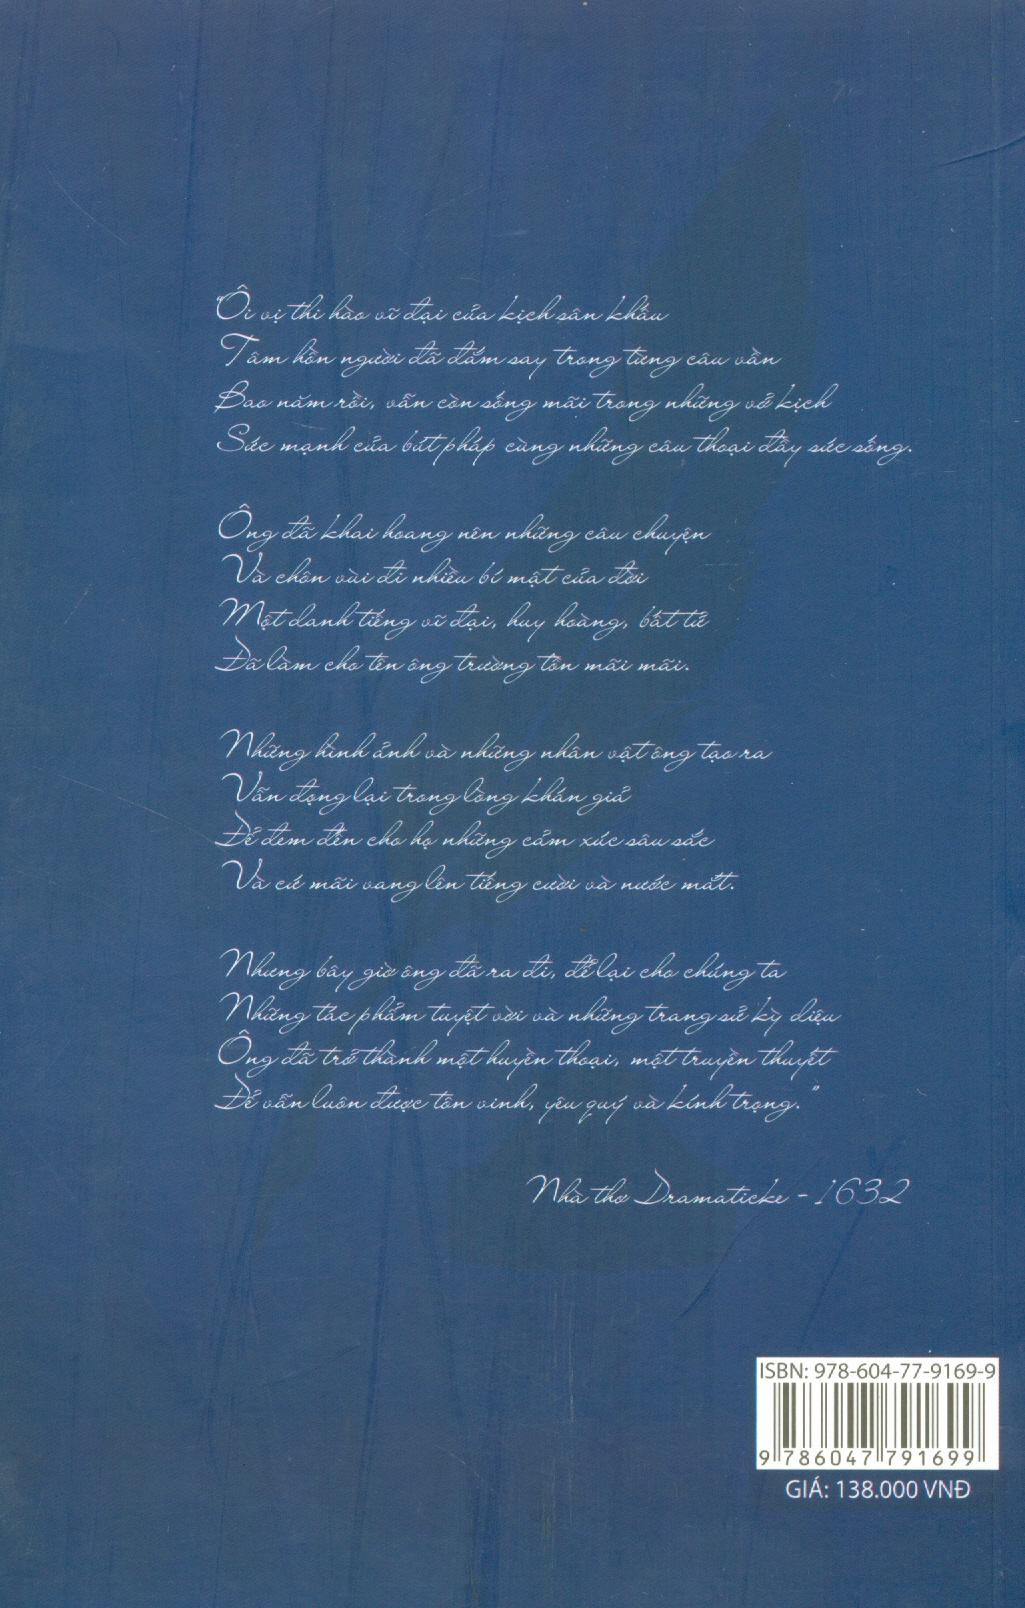 "Ôi vị thi hào vĩ đại của kịch sân khấu
Tâm hồn người đã đắm say trong từng câu vần
Bao năm rồi, vẫn còn sống mãi trong những vở kịch
Sức mạnh của bút pháp cùng những câu thoại đầy sức sống.
Ông đã khai hoang nên những câu chuyện
Và chôn vùi đi nhiều bí mật của đời
Một danh tiếng vĩ đại, huy hoàng, bất tử
Đã làm cho tên ông trường tồn mãi mãi.
Những hình ảnh và những nhân vật ông tạo ra
Vẫn đọng lại trong lòng khán giả
Để đem đến cho họ những cảm xúc sâu sắc
Và cứ mãi vang lên tiếng cười và nước mắt.
Nhưng bây giờ ông đã ra đi, để lại cho chúng ta
Những tác phẩm tuyệt vời và những trang sử kỳ diệu
Ông đã trở thành một huyền thoại, một truyền thuyết
Để vẫn luôn được tôn vinh, yêu quý và kính trọng."
Nhà thơ Dramaticke - 1632
ISBN: 978-604-77-9169-9
9 786047 791699
GIÁ: 138.000 VNĐ